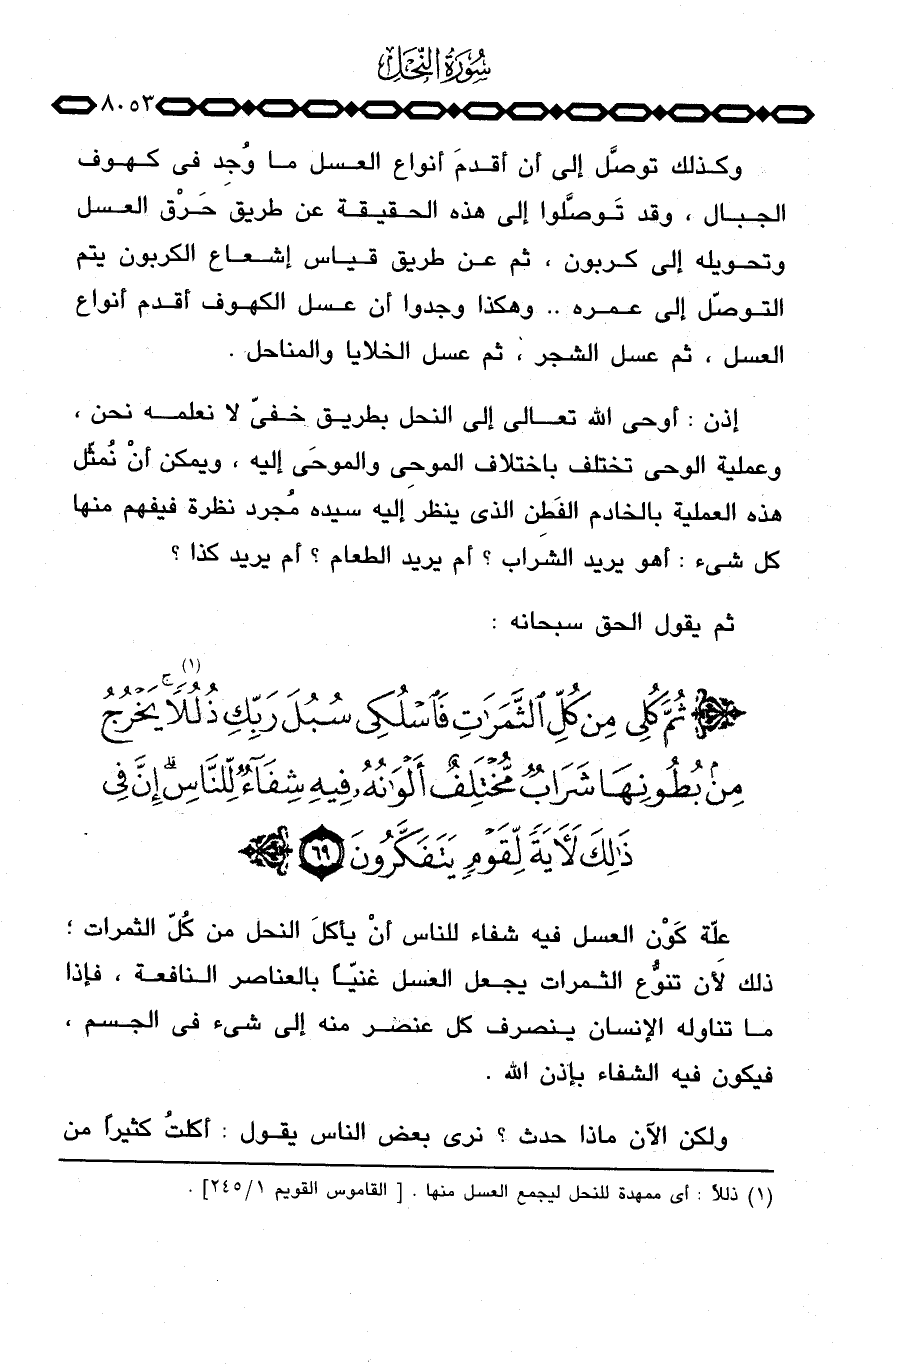 سُورَةُ النَّحْلِ
٨٠٥٣
وكذلك توصَّل إلى أن أقدمَ أنواع العسل ما وُجِد فى كهوف
الجبال ، وقد تَوصَّلوا إلى هذه الحقيقة عن طريق حَرْق العسل
وتحويله إلى كربون ، ثم عن طريق قياس إشعاع الكربون يتم
التوصّل إلى عمره .. وهكذا وجدوا أن عسل الكهوف أقدم أنواع
العسل ، ثم عسل الشجر ، ثم عسل الخلايا والمناحل .
إذن : أوحى الله تعالى إلى النحل بطريق خفىّ لا نعلمه نحن ،
وعملية الوحى تختلف باختلاف الموحى والموحَى إليه ، ويمكن أنْ نُمثِّل
هذه العملية بالخادم الفَطِن الذى ينظر إليه سيده مُجرد نظرة فيفهم منها
كل شىء : أهو يريد الشراب ؟ أم يريد الطعام ؟ أم يريد كذا ؟
ثم يقول الحق سبحانه :
ثُمَّ كُلِى مِن كُلِّ ٱلثَّمَرَٰتِ فَٱسْلُكِى سُبُلَ رَبِّكِ ذُلُلًا (١) ۚ يَخْرُجُ
مِنۢ بُطُونِهَا شَرَابٌ مُّخْتَلِفٌ أَلْوَٰنُهُۥ فِيهِ شِفَآءٌ لِّلنَّاسِ ۗ إِنَّ فِى
ذَٰلِكَ لَـَٔايَةً لِّقَوْمٍ يَتَفَكَّرُونَ ٦٩
علّة كَوْن العسل فيه شفاء للناس أنْ يأكلَ النحل من كُلّ الثمرات ؛
ذلك لأن تنوُّع الثمرات يجعل العسل غنيّاً بالعناصر النافعة ، فإذا
ما تناوله الإنسان ينصرف كل عنصر منه إلى شىء فى الجسم ،
فيكون فيه الشفاء بإذن الله .
ولكن الآن ماذا حدث ؟ نرى بعض الناس يقول : أكلتُ كثيراً من
(١) ذللاً : أى ممهدة للنحل ليجمع العسل منها . [ القاموس القويم ٢٤٥/١] .